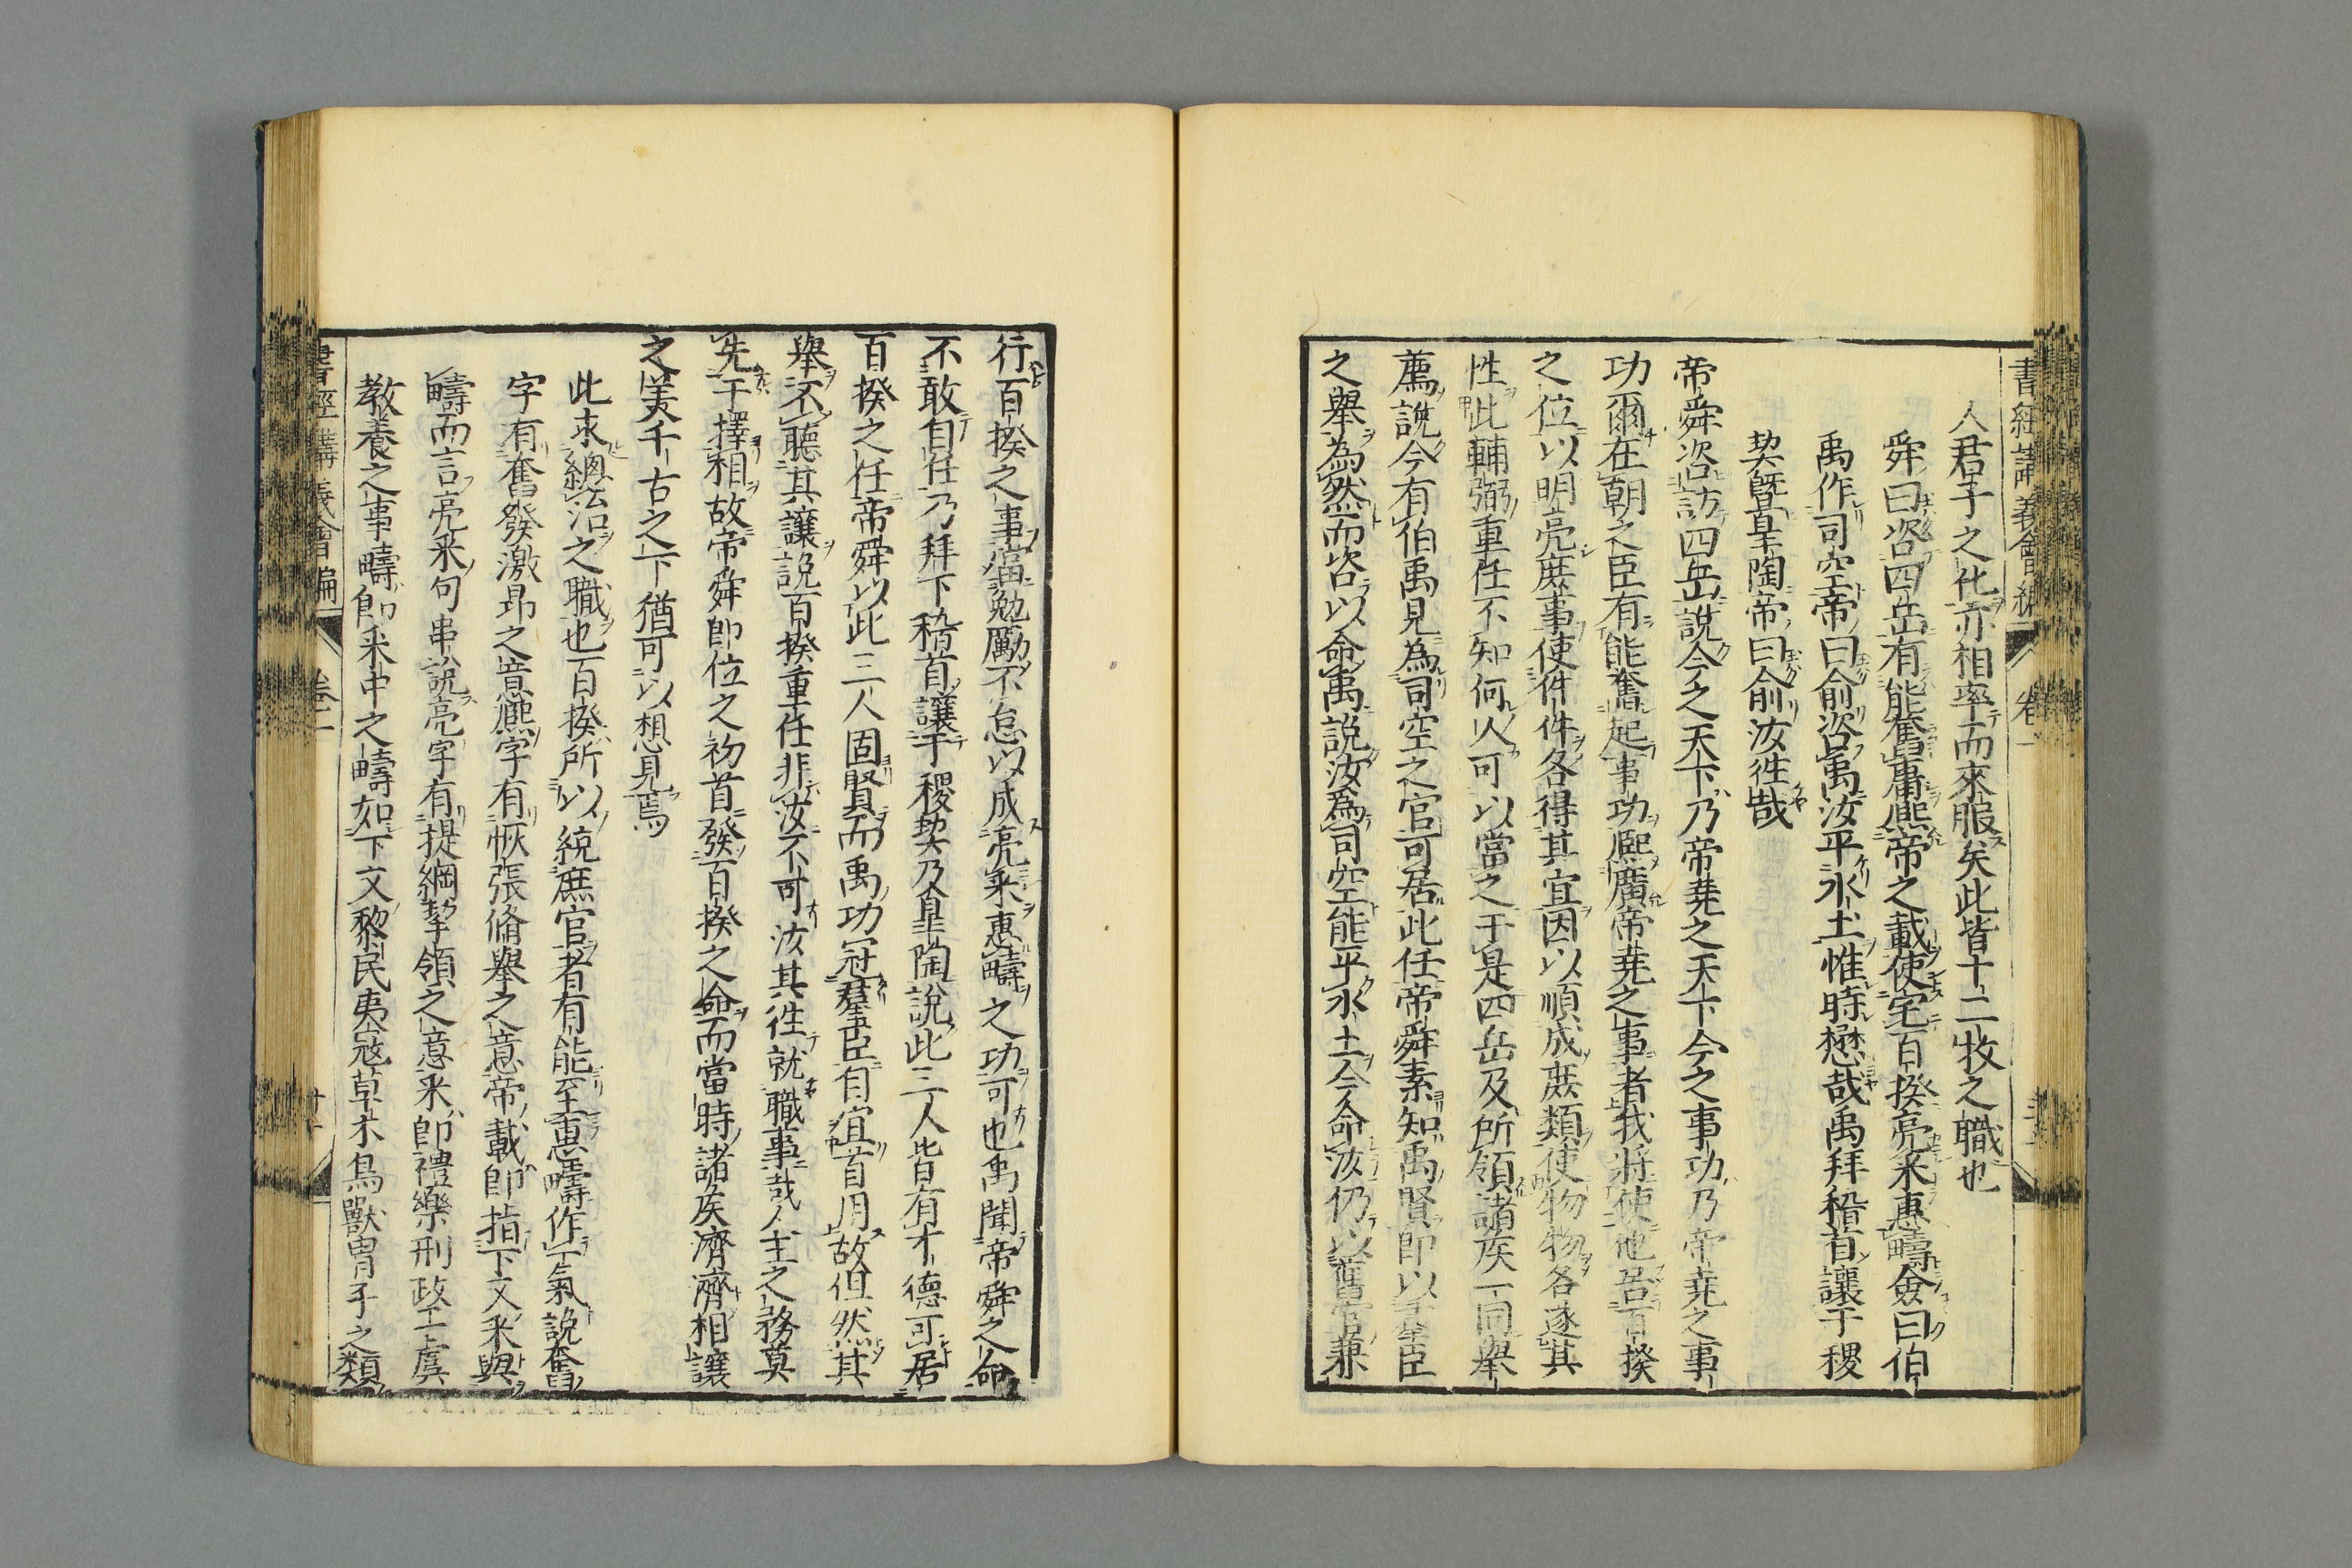 書經講義會編 卷一
人君子之化亦相率而來服矣此皆十二牧之職也
舜曰咨四岳有能奮庸熈帝之載使宅百揆亮采惠疇僉曰伯
禹作司空帝曰俞咨禹汝平水土惟時懋哉禹拜稽首讓于稷
契曁皐陶帝曰俞汝徃哉
帝舜咨訪四岳說今之天下乃帝堯之天下今之事功乃帝堯之事
功爾在朝之臣有能奮起事功熈廣帝堯之事者我將使他居百揆
之位以明亮庶事使件件各得其宜因以順成庶類使物物各遂其
性此輔弼重任不知何人可以當之于是四岳及所領諸矦一同舉
薦說今有伯禹見為司空之官可居此任帝舜素知禹賢即以羣臣
之舉為然而咨以命禹說汝爲司空能平水土今命汝仍以舊官兼
行百揆之事當勉勵不怠以成亮采惠疇之功可也禹聞帝舜之命
不敢自任乃拜下稽首讓于稷契乃皐陶說此三人皆有才德可居
百揆之任帝舜以此三人固賢而禹功冠羣臣自宜首用故但然其
舉不聽其讓說百揆重任非汝不可汝其徃就職事哉人主之務莫
先于擇相故帝舜即位之初首發百揆之命而當時諸矦濟濟相讓
之美千古之下猶可以想見焉
此求總治之職也百揆所以統庶官者有能至惠疇作一氣說奮
字有奮發激昂之意熈字有恢張脩舉之意帝載即指下文采與
疇而言亮采句串說亮字有提綱挈領之意采即禮樂刑政工虞
教養之事疇即采中之疇如下文黎民夷寇草木鳥獸胄子之類
書經講義會編 卷一